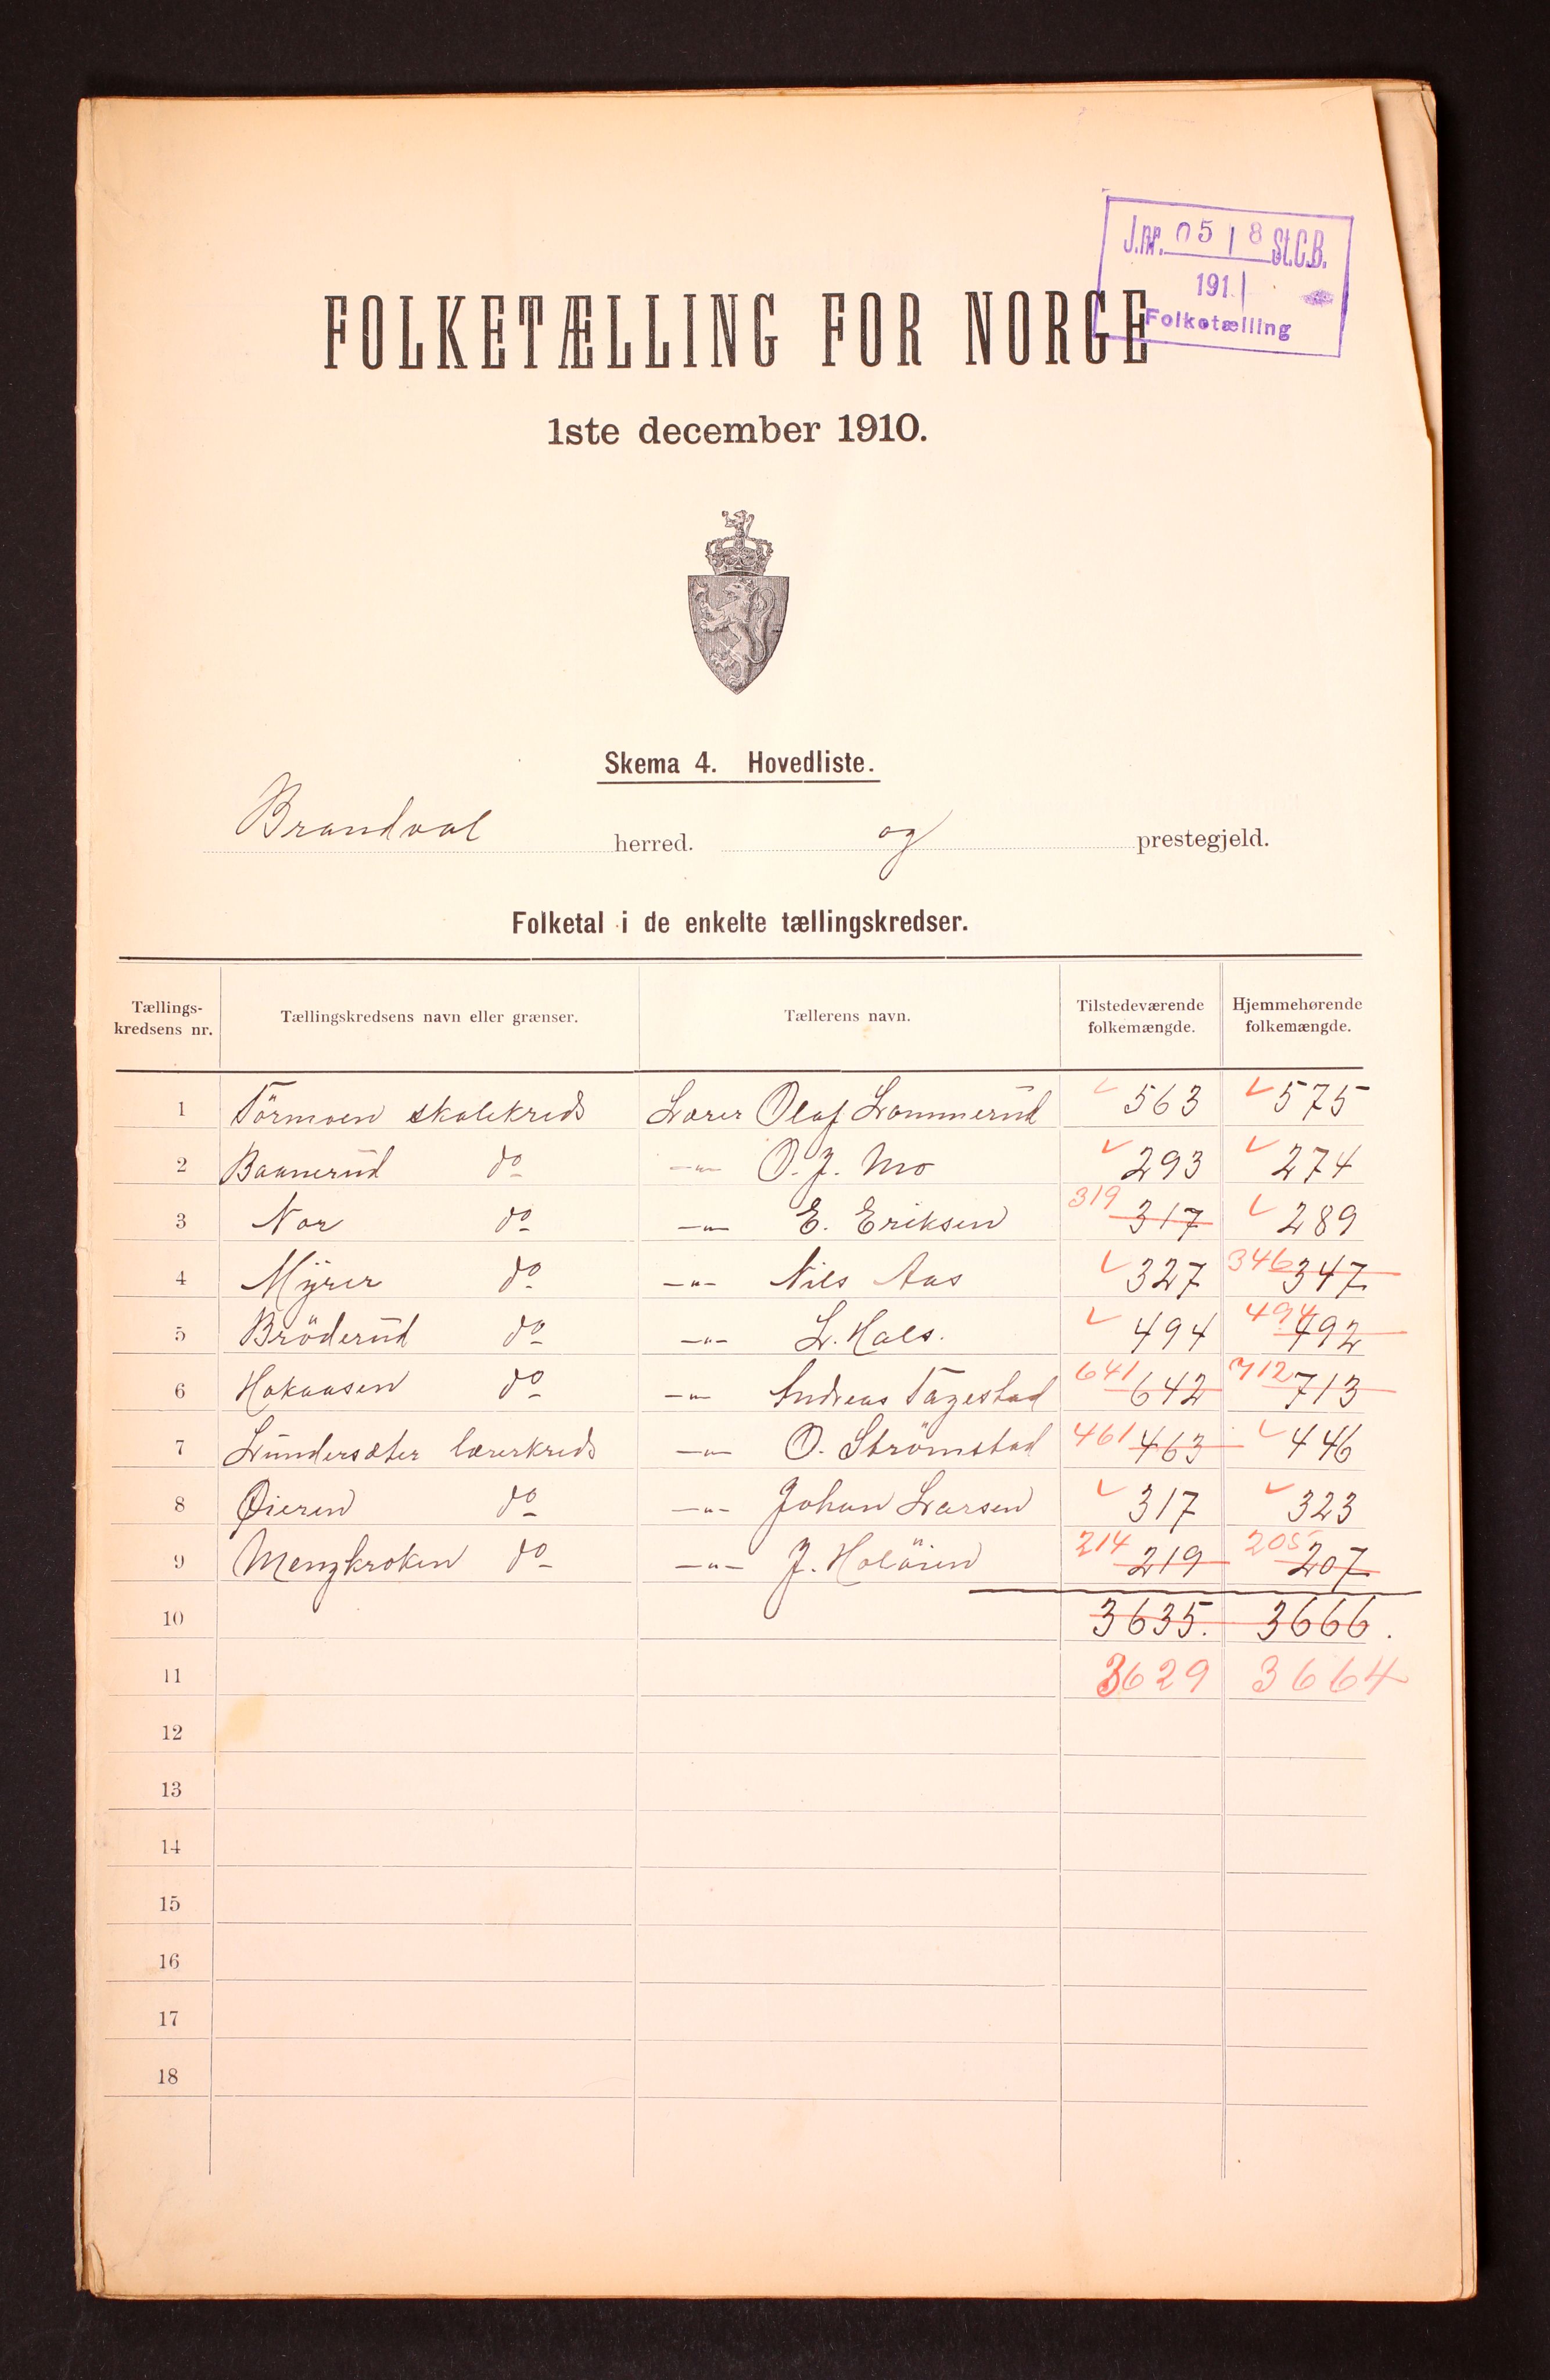 J.nr. 0518 St.C.B.
1911
Folketælling
FOLKETÆLLING FOR NORGE
1ste december 1910.
Skema 4. Hovedliste.
Brandval herred. og prestegjeld.
Folketal i de enkelte tællingskredser.
Tællings-kredsens nr. Tællingskredsens navn eller grænser. Tællerens navn. Tilstedeværende folkemængde. Hjemmehørende folkemængde.
1 Törmoen skolekreds Lærer Olaf Lommerud 563 575
2 Baanerud do -"- O. J. Mo 293 274
3 Nor do -"- E. Eriksen 319 317 289
4 Myrer do -"- Nils Aas 327 346 347
5 Bröderud do -"- L. Hals. 494 494 492
6 Hokaasen do -"- Andreas Tagestad 641 642 712 713
7 Lundersæter lærerkreds -"- O. Strömstad 461 463 446
8 Øieren do -"- Johan Larsen 317 323
9 Mengkroken do -"- J. Holöien 214 219 205 207
10 3635. 3666.
11 3629 3664
12
13
14
15
16
17
18